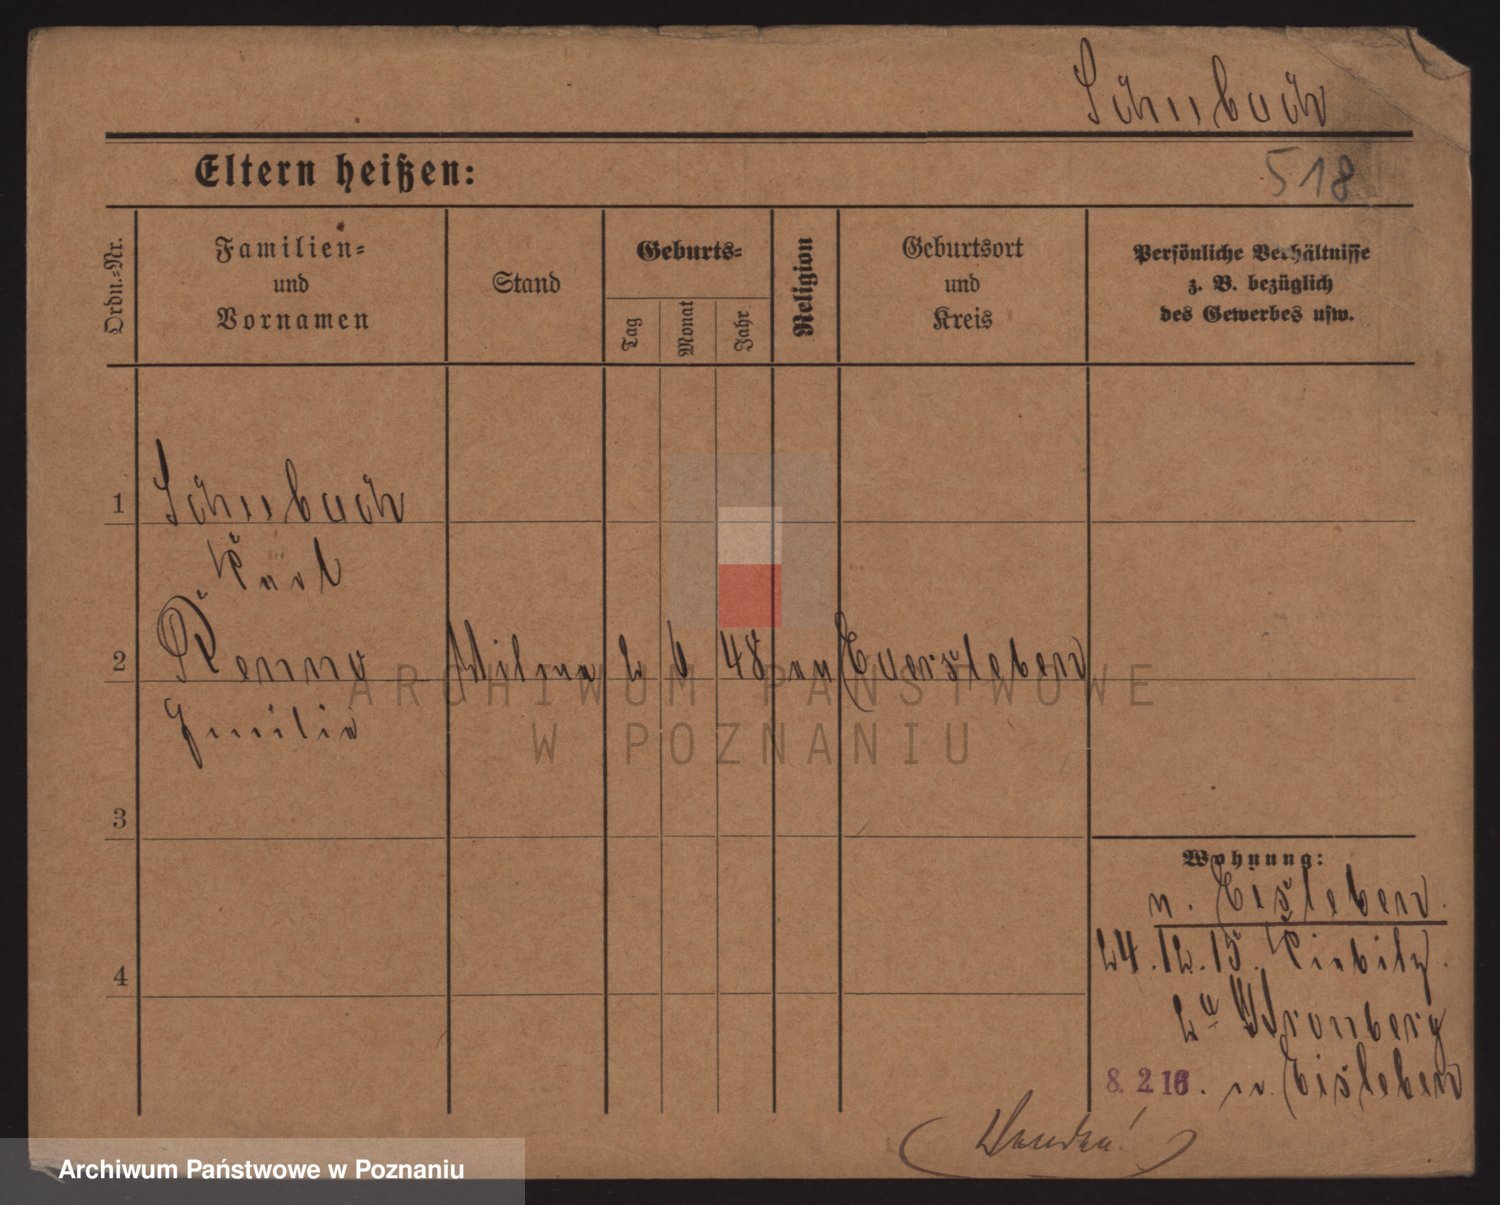 Schubach
Eltern heißen:
518
Ordn.-Nr.
Familien-
und
Vornamen
Stand
Geburts-
Tag
Monat
Jahr
Religion
Geburtsort
und
Kreis
Persönliche Verhältnisse
z. B. bezüglich
des Gewerbes usw.
1 Schubach
Karl
2 Renno Witwe 2 6 48 ev Eversleben
Emilie
3
4
Wohnung:
n. Eisleben.
24.12.15. Kiebitz
2a Wronberg
8. 2 16. n. Eisleben
(Wenden!)
ARCHIWUM PAŃSTWOWE
W POZNANIU
Archiwum Państwowe w Poznaniu